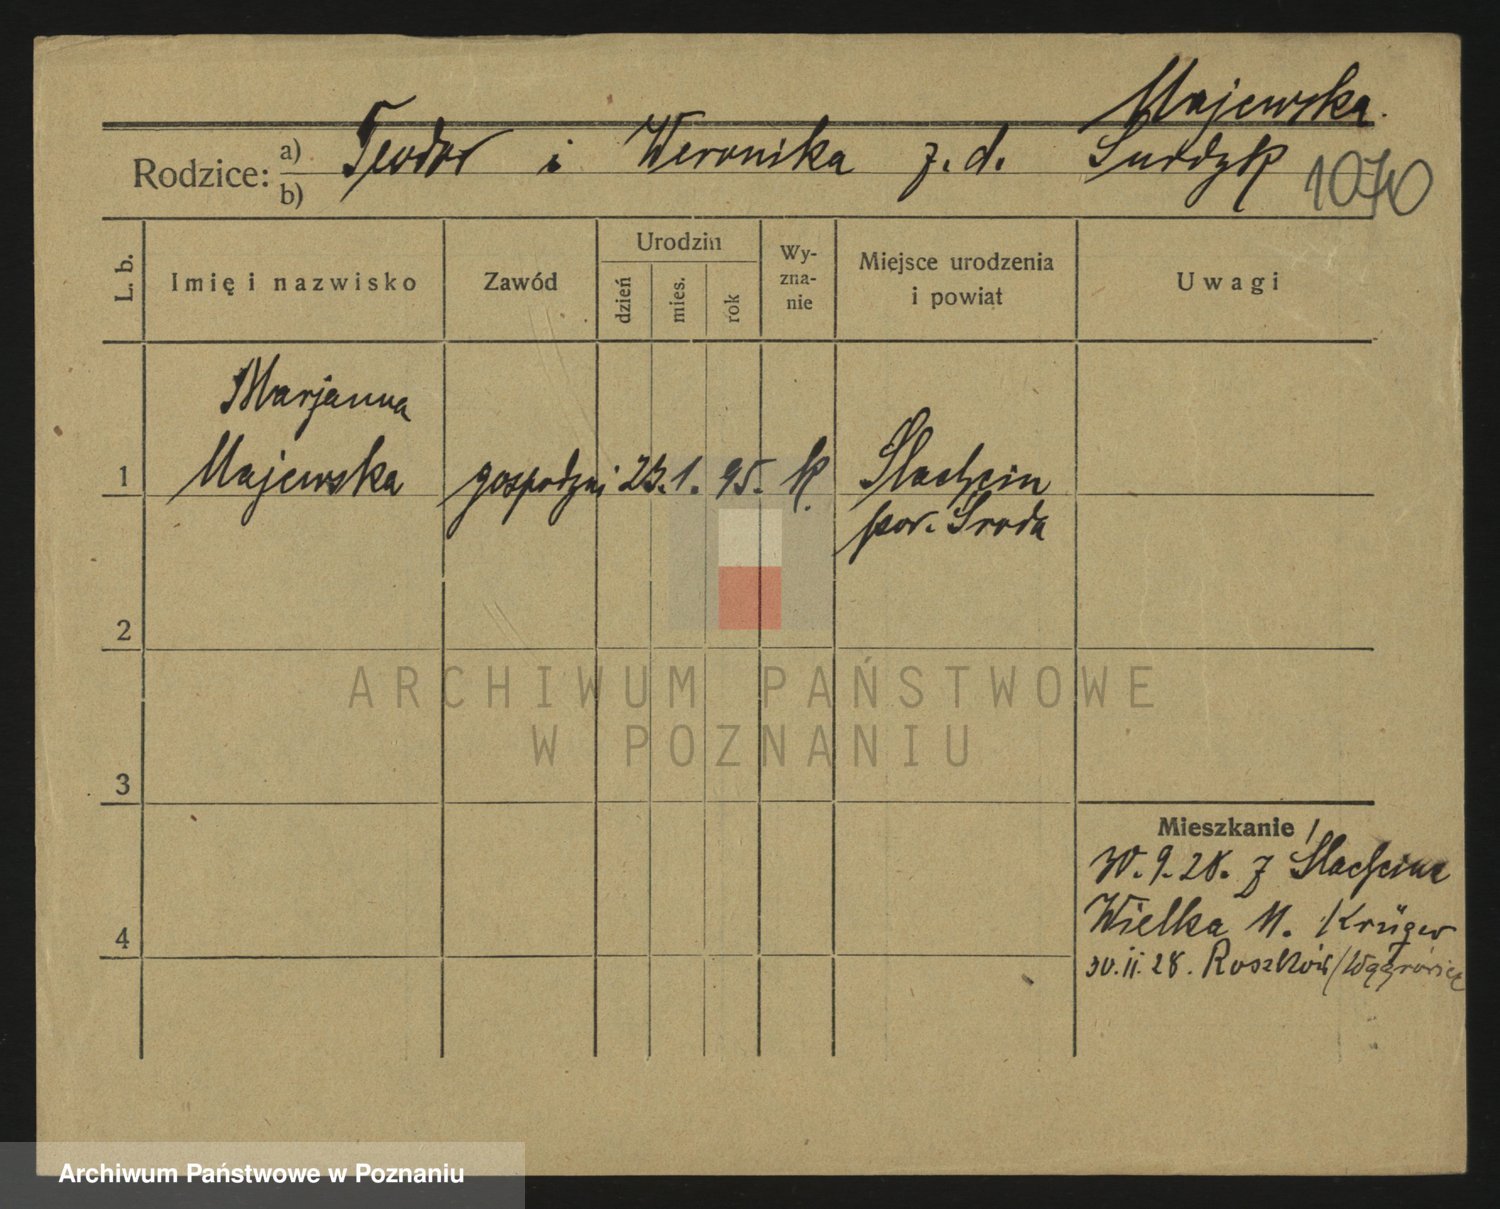 Majewska.
Rodzice: a) b) Teodor i Weronika z. d. Surdyk 1070
L. b. Imię i nazwisko Zawód Urodzin dzień mies. rok Wy-zna-nie Miejsce urodzenia i powiat Uwagi
Marjanna
1 Majewska gospodyni 23. 1. 95. k. Slachcin
pow. Sroda
2
ARCHIWUM PAŃSTWOWE
W POZNANIU
3
Mieszkanie
30. 9. 28. z Slachcina
Wielka 11. Krüger
4
30. 11. 28. Roszków/Wągrówiec
Archiwum Państwowe w Poznaniu